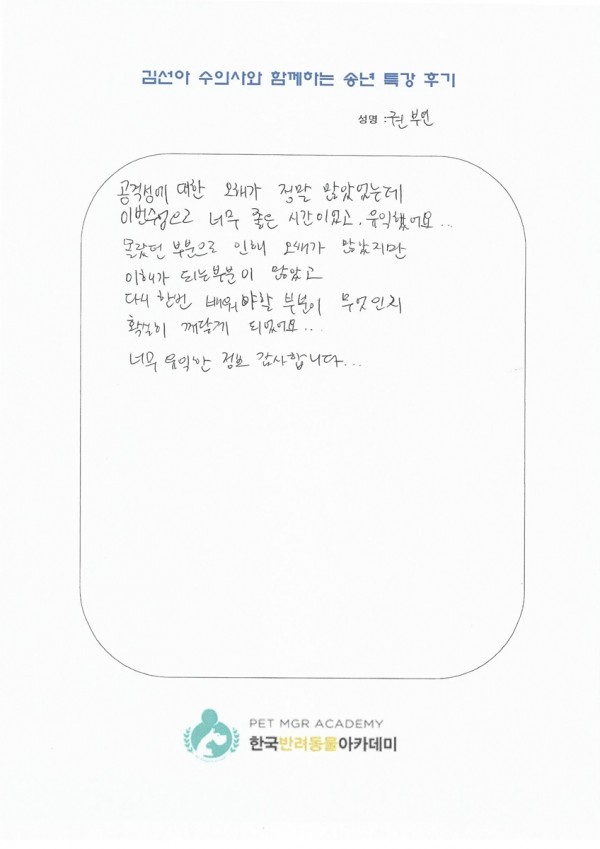 김선아 수의사와 함께하는 송년 특강 후기
성명 : 권부연
공격성에 대한 오해가 정말 많았었는데
이번수업으로 너무 좋은 시간이였고, 유익했어요...
몰랐던 부분으로 인해 오해가 많았지만
이해가 되는부분이 많았고
다시 한번 배워야할 부분이 무엇인지
확실히 깨닫게 되었어요...
너무 유익한 정보 감사합니다...
PET MGR ACADEMY
한국반려동물아카데미